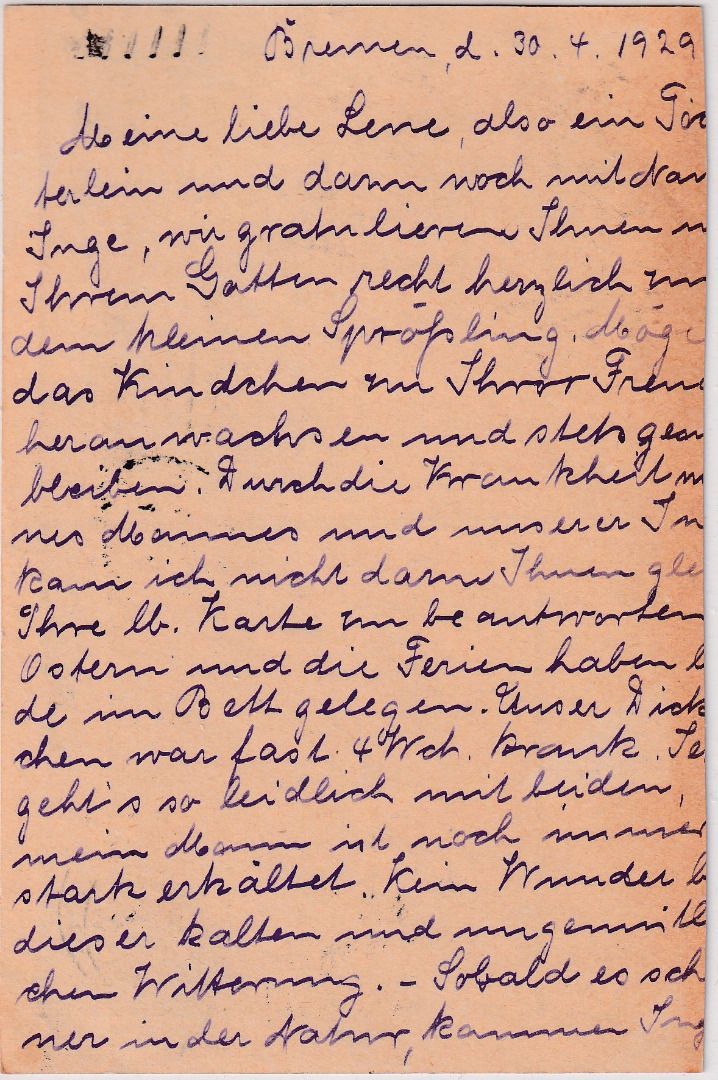 Bremen, d. 30. 4. 1929
Meine liebe Lene, also ein Töc
terlein und dann noch mit Nam
Inge, wir gratulieren Ihnen u
Ihrem Gatten recht herzlich zu
dem kleinen Sprößling. Möge
das Kindchen zu Ihrer Freu
heranwachsen und stets gesu
bleiben. Durch die Krankheit m
nes Mannes und unserer In
kam ich nicht dazu Ihnen gle
Ihre lb. Karte zu beantworten
Ostern und die Ferien haben b
de im Bett gelegen. Unser Dick
chen war fast 4 Wch. krank. Je
geht's so leidlich mit beiden,
mein Mann ist noch immer
stark erkältet. Kein Wunder b
dieser kalten und ungemütl
chen Witterung. – Sobald es sch
ner in der Natur, kommen Ing